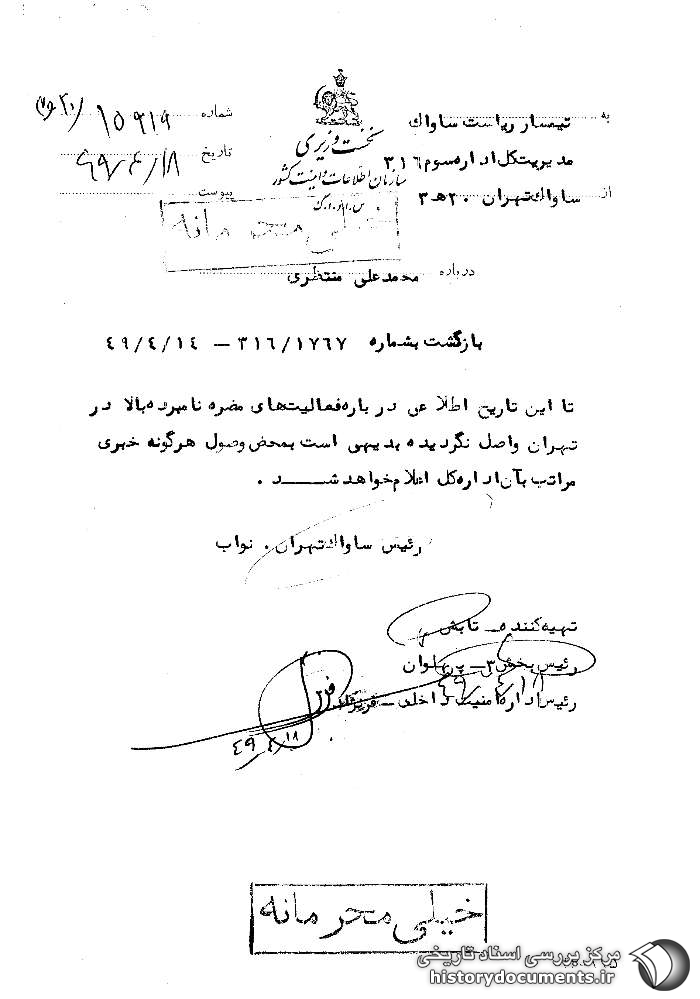 به تیمسار ریاست ساواک
مدیریت کل اداره سوم ۳۱۶
از ساواک تهران ۲۰ هـ ۳
نخست وزیری
سازمان اطلاعات و امنیت کشور
س.ا.و.ا.ک
شماره ۱۵۹۱۹ / ۲۰
تاریخ ۴۹/۴/۱۸
پیوست
خیلی محرمانه
درباره محمدعلی منتظری
بازگشت بشماره ۳۱۶/۱۷۶۷ – ۴۹/۴/۱۴
تا این تاریخ اطلاعی درباره فعالیت‌های مضره نامبرده بالا در
تهران واصل نگردیده بدیهی است بمحض وصول هرگونه خبری
مراتب بآن اداره کل اعلام خواهد شد .
رئیس ساواک تهران . نواب
تهیه کننده – تابش
رئیس بخش ۳ – پهلوان
۴۹/۴/۱۸
رئیس اداره امنیت داخلی –
۴۹/۴/۱۸
خیلی محرمانه
مرکز بررسی اسناد تاریخی
historydocuments.ir